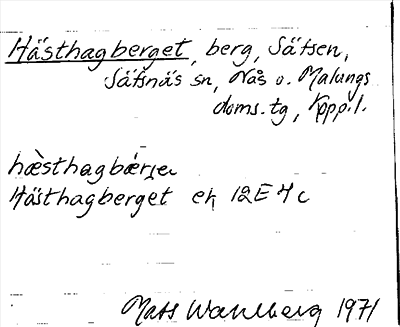 Hästhagberget, berg, Säfsen,
Säfsnäs sn, Nås o. Malungs
doms.tg, Kppl.
hæ̀sthagbærjer
Hästhagberget ek 12E4c
Mats Wahlberg 1971